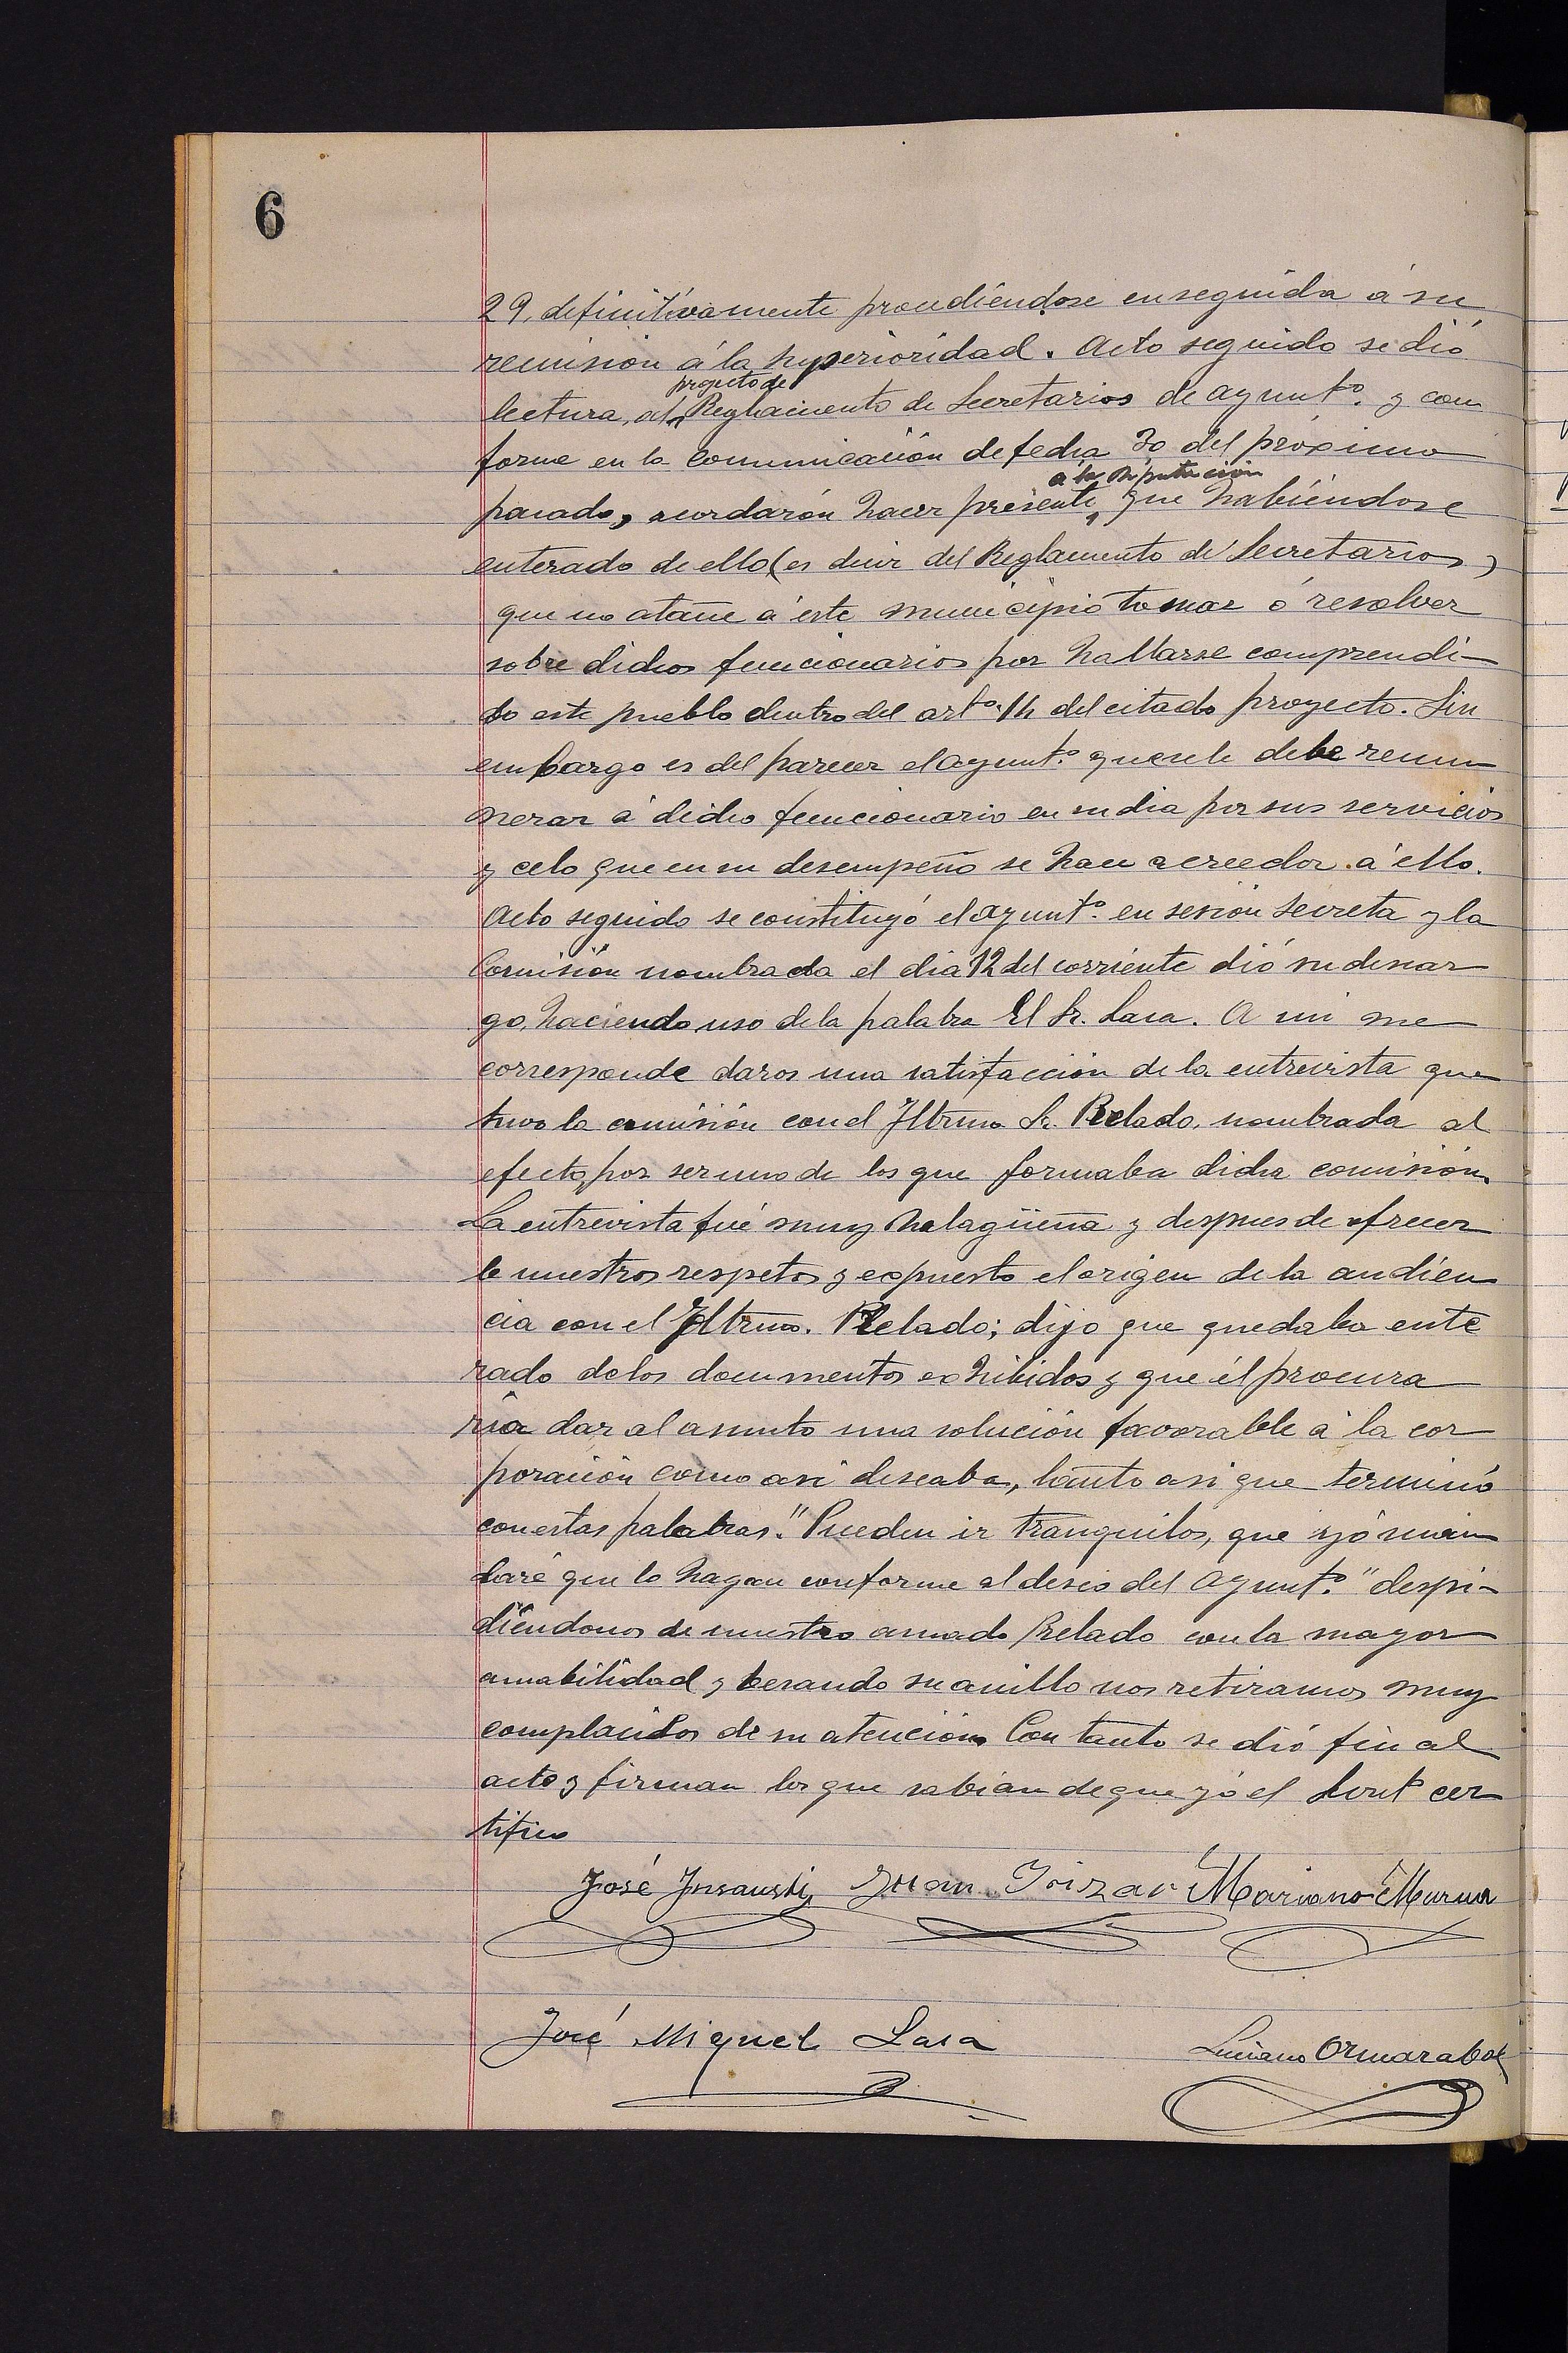 6
29, definitivamente procediéndose enseguida á su
remisión á la superioridad. Acto seguido se dió
proyecto de
lectura, al Reglamento de Secretarios de ayuntº. y con
forme en la comunicación de fecha 30 del próximo
á la Diputación
pasado, acordarón hacer presente, que habiéndose
enterado de ello (es decir del Reglamento de Secretarios)
que no atañe á este municipio tomar ó resolver
sobre dichos funcionarios por hallarse comprendi-
do este pueblo dentro del artº. 14 del citado proyecto. Sin
embargo es del parecer el ayuntº. que se le debe remu
nerar á dicho funcionario en su dia por sus servicios
y celo que en su desempeño se hace acreedor á ello.
Acto seguido se constituyó el ayuntº. en sesión secreta y la
Comisión nombrada el dia 12 del corriente dió su descar
go, haciendo uso de la palabra El Sr. Lasa. A mi me
corresponde daros una satisfacción de la entrevista que
tuvo la comisión con el Iltrmo Sr. Prelado, nombrada al
efecto, por ser uno de los que formaba dicha comisión.
La entrevista fué muy halagüeña y despues de ofrecer
le nuestros respetos y expuesto el origen de la audien
cia con el Iltrmo. Prelado; dijo que quedaba ente
rado de los documentos exhibidos y que él procura
ria dar al asunto una solución favorable á la cor
poración como asi deseaba, tanto asi que terminó
con estas palabras." Pueden ir tranquilos, que yó man
daré que lo hagan conforme al deseo del Ayuntº." despi-
diéndonos de nuestro amado Prelado con la mayor
amabilidad y besando su anillo nos retiramos muy
complacidos de su atención. Con tanto se dió fin al
acto y firman los que sabian de que yó el Sectº cer
tifico
José Insausti Juan Irizar Mariano Murua
José Miguel Lasa
Luciano Ormarabal